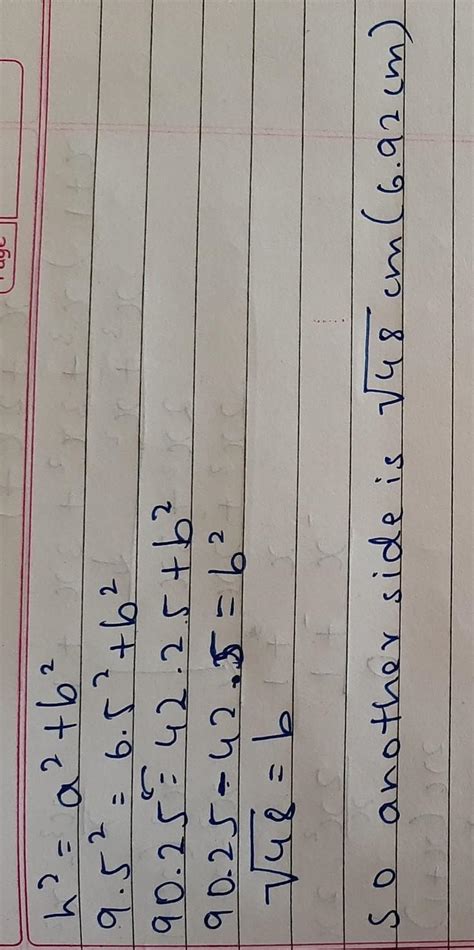 Page
h² = a² + b²
9.5² = 6.5² + b²
90.25 = 42.25 + b²
90.25 - 42.5 = b²
√48 = b
So another side is √48 cm (6.92 cm)